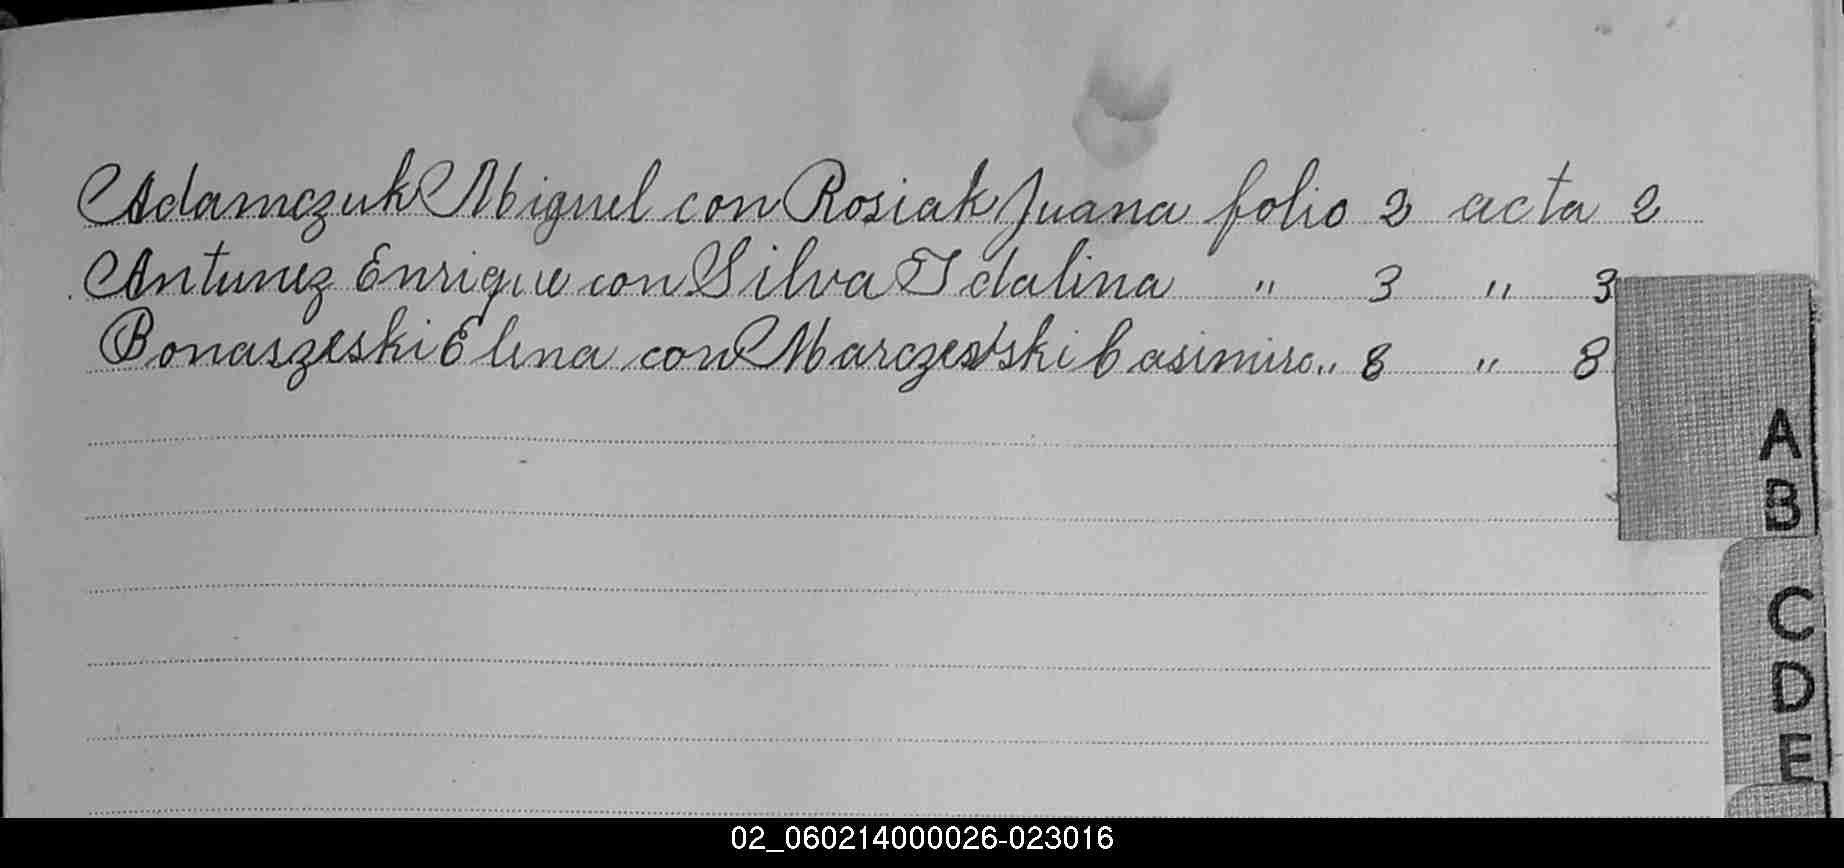 Adamczuk Miguel con Rosiak Juana folio 2 acta 2
Antunez Enrique con Silva Idalina " 3 " 3
Bonaszeski Elena con Marczewski Casimiro " 8 " 8
A
B
C
D
E
02_060214000026-023016